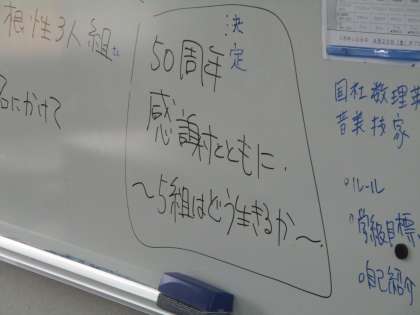 根性3人組
名にかけて
決定
50周年
感謝とともに、
〜5組はどう生きるか〜
国社数理英
音美技家
○ルール
○学級目標
○自己紹介